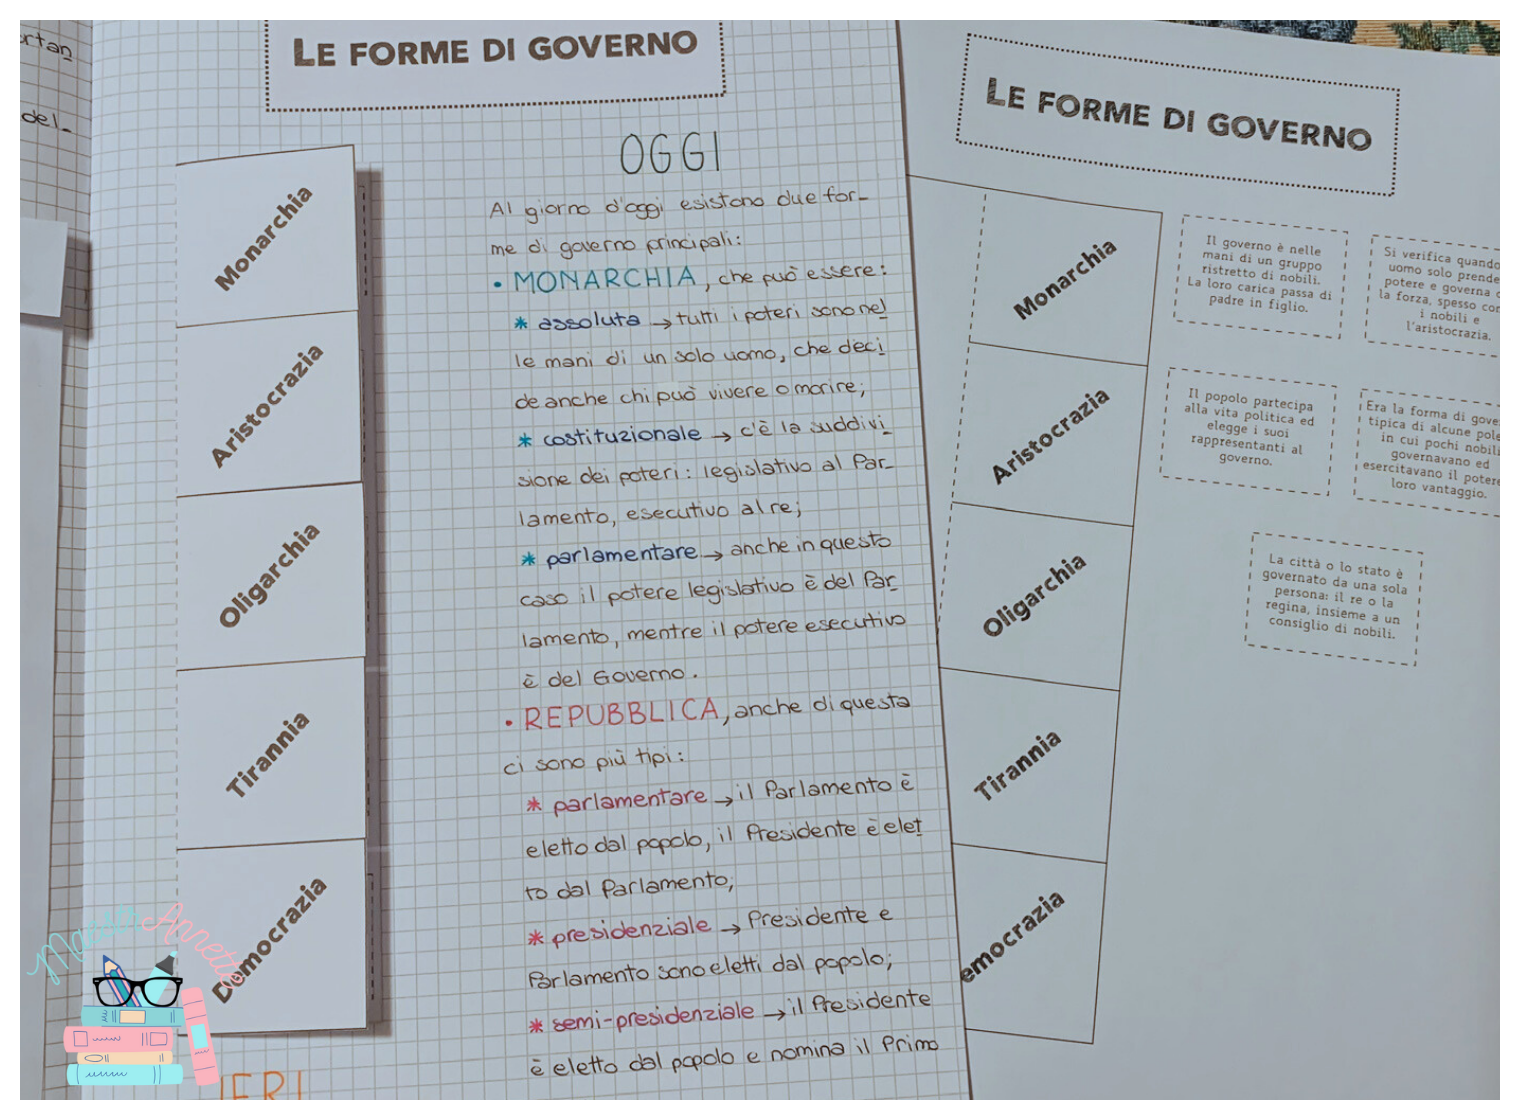 rtan
del-
LE FORME DI GOVERNO
Monarchia
Aristocrazia
Oligarchia
Tirannia
Democrazia
IERI
OGGI
Al giorno d'oggi esistono due for-
me di governo principali:
• MONARCHIA, che può essere:
* assoluta → tutti i poteri sono nel
le mani di un solo uomo, che deci
de anche chi può vivere o morire;
* costituzionale → c'è la suddivi
sione dei poteri: legislativo al Par-
lamento, esecutivo al re;
* parlamentare → anche in questo
caso il potere legislativo è del Par
lamento, mentre il potere esecutivo
è del Governo.
• REPUBBLICA, anche di questa
ci sono più tipi:
* parlamentare → il Parlamento è
eletto dal popolo, il Presidente è elet
to dal Parlamento;
* presidenziale → Presidente e
Parlamento sono eletti dal popolo;
* semi-presidenziale → il Presidente
è eletto dal popolo e nomina il Primo
LE FORME DI GOVERNO
Monarchia
Aristocrazia
Oligarchia
Tirannia
emocrazia
Il governo è nelle
mani di un gruppo
ristretto di nobili.
La loro carica passa di
padre in figlio.
Si verifica quando
uomo solo prende
potere e governa c
la forza, spesso con
i nobili e
l'aristocrazia.
Il popolo partecipa
alla vita politica ed
elegge i suoi
rappresentanti al
governo.
Era la forma di gove
tipica di alcune pole
in cui pochi nobili
governavano ed
esercitavano il potere
loro vantaggio.
La città o lo stato è
governato da una sola
persona: il re o la
regina, insieme a un
consiglio di nobili.